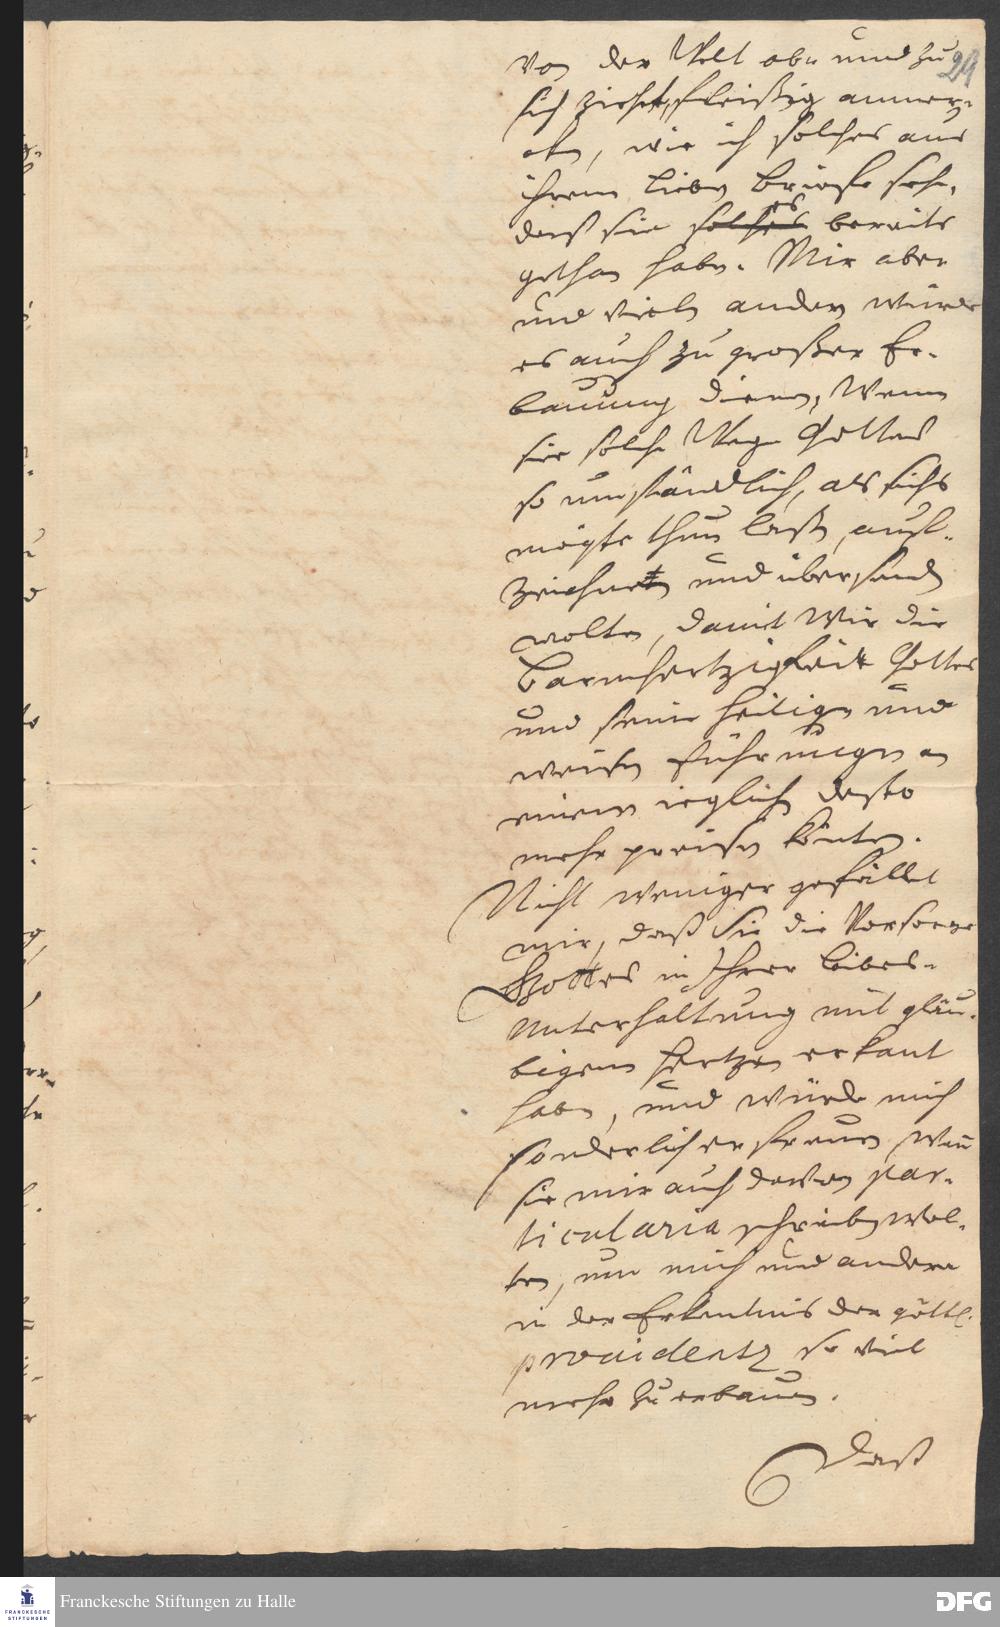 von der Welt ab- und zu 24
sich ziehet, fleißig anmer-
cken, wie ich solches aus
ihrem lieben Briefe sehe,
daß sie solches es bereits
gethan haben. Mir aber
und vielen andern würde
es auch zu großer Er-
bauung dienen, Wenn
sie solche Wege Gottes
so umständlich, als sichs
mögte thun laßen, auf-
zeichnen und übersenden
wolten, damit Wir die
Barmhertzigkeit Gottes
und seine heiligen und
weisen führungen an
einem ieglichen desto
mehr preisen könten.
Nicht weniger gefället
mir, daß Sie die Vorsorge
Gottes in Ihrer leibes-
Unterhaltung mit gläu-
bigem Hertzen erkant
haben, und würde mich
sonderlich erfreuen, Wenn
sie mir auch davon par-
ticularia schreiben wol-
ten, um mich und andere
in der Erkentnis der göttl.
providentz so viel
mehr zu erbauen.
Daß
Franckesche Stiftungen zu Halle
FRANCKESCHE
STIFTUNGEN
DFG